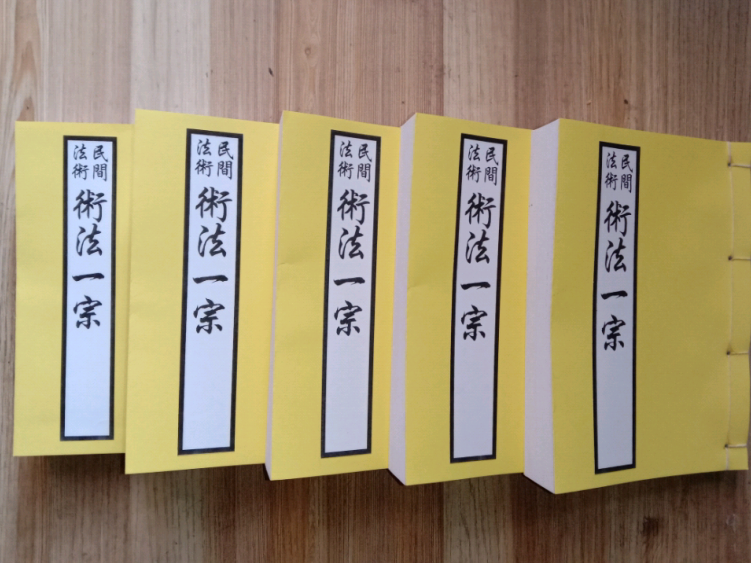 民間
法術
術法一宗
民間
法術
術法一宗
民間
法術
術法一宗
民間
法術
術法一宗
民間
法術
術法一宗